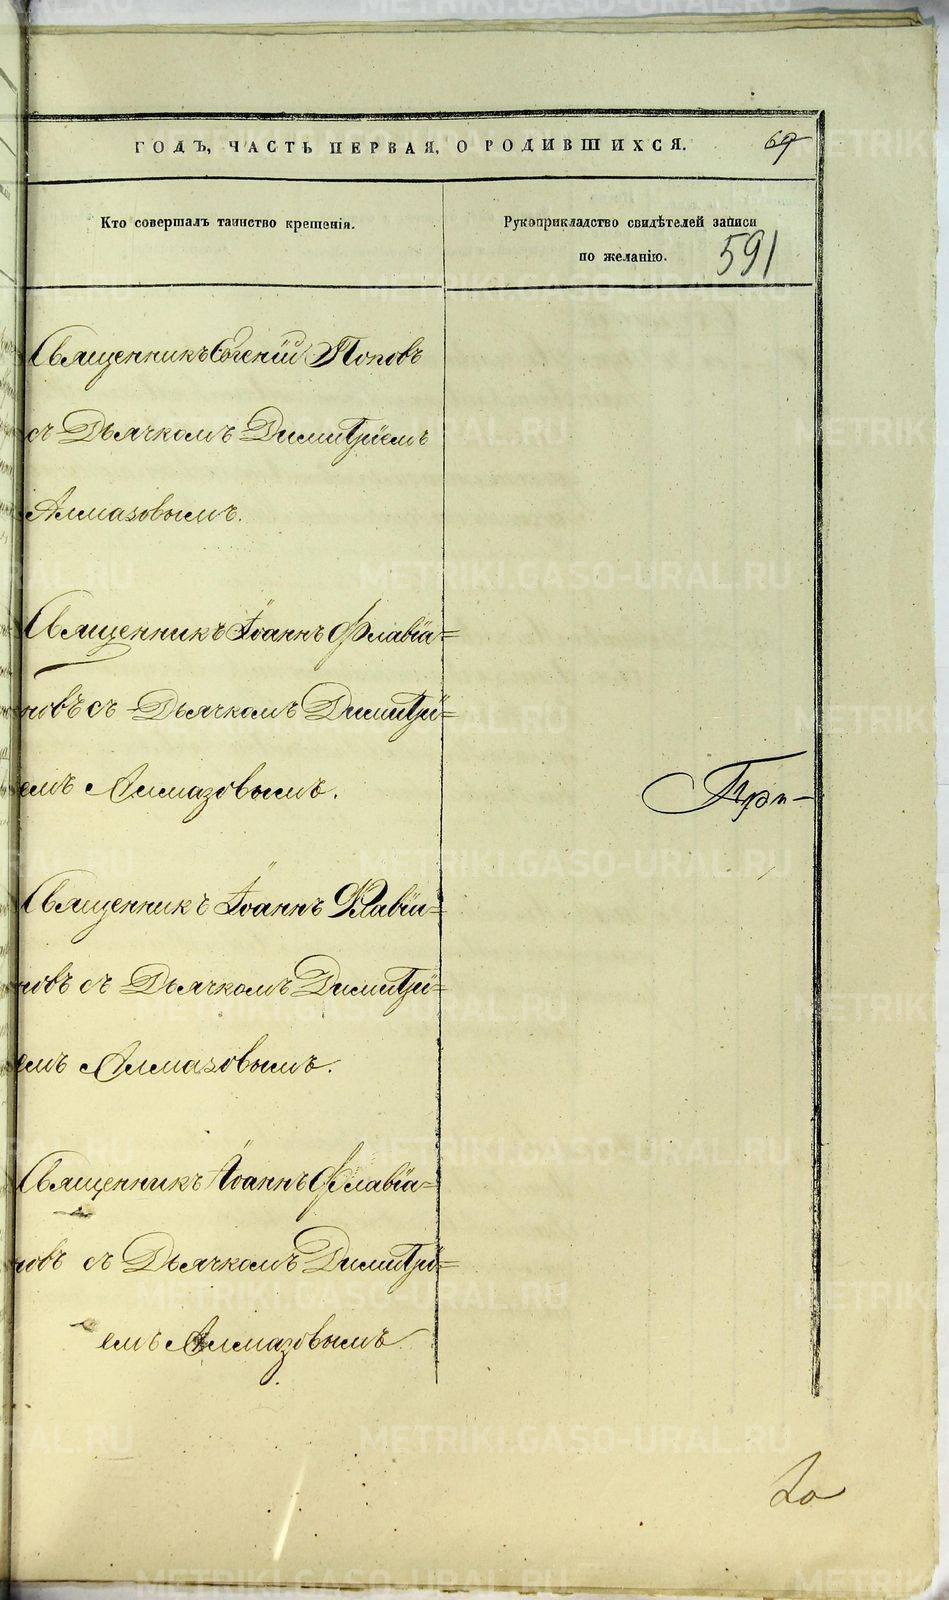 ГОДЪ, ЧАСТЬ ПЕРВАЯ, О РОДИВШИХСЯ. 69
Кто совершалъ таинство крещенія.
Рукоприкладство свидѣтелей записи
по желанію. 591
Священникъ Евгеній Поповъ
съ Дьячкомъ Димитріемъ
Алмазовымъ.
Священникъ Іоаннъ Флавіа=
новъ съ Дьячкомъ Димитрі=
емъ Алмазовымъ.
При-
Священникъ Іоаннъ Флавіа=
новъ съ Дьячкомъ Димитрі=
емъ Алмазовымъ.
Священникъ Іоаннъ Флавіа=
новъ съ Дьячкомъ Димитрі=
емъ Алмазовымъ
METRIKI.GASO-URAL.RU